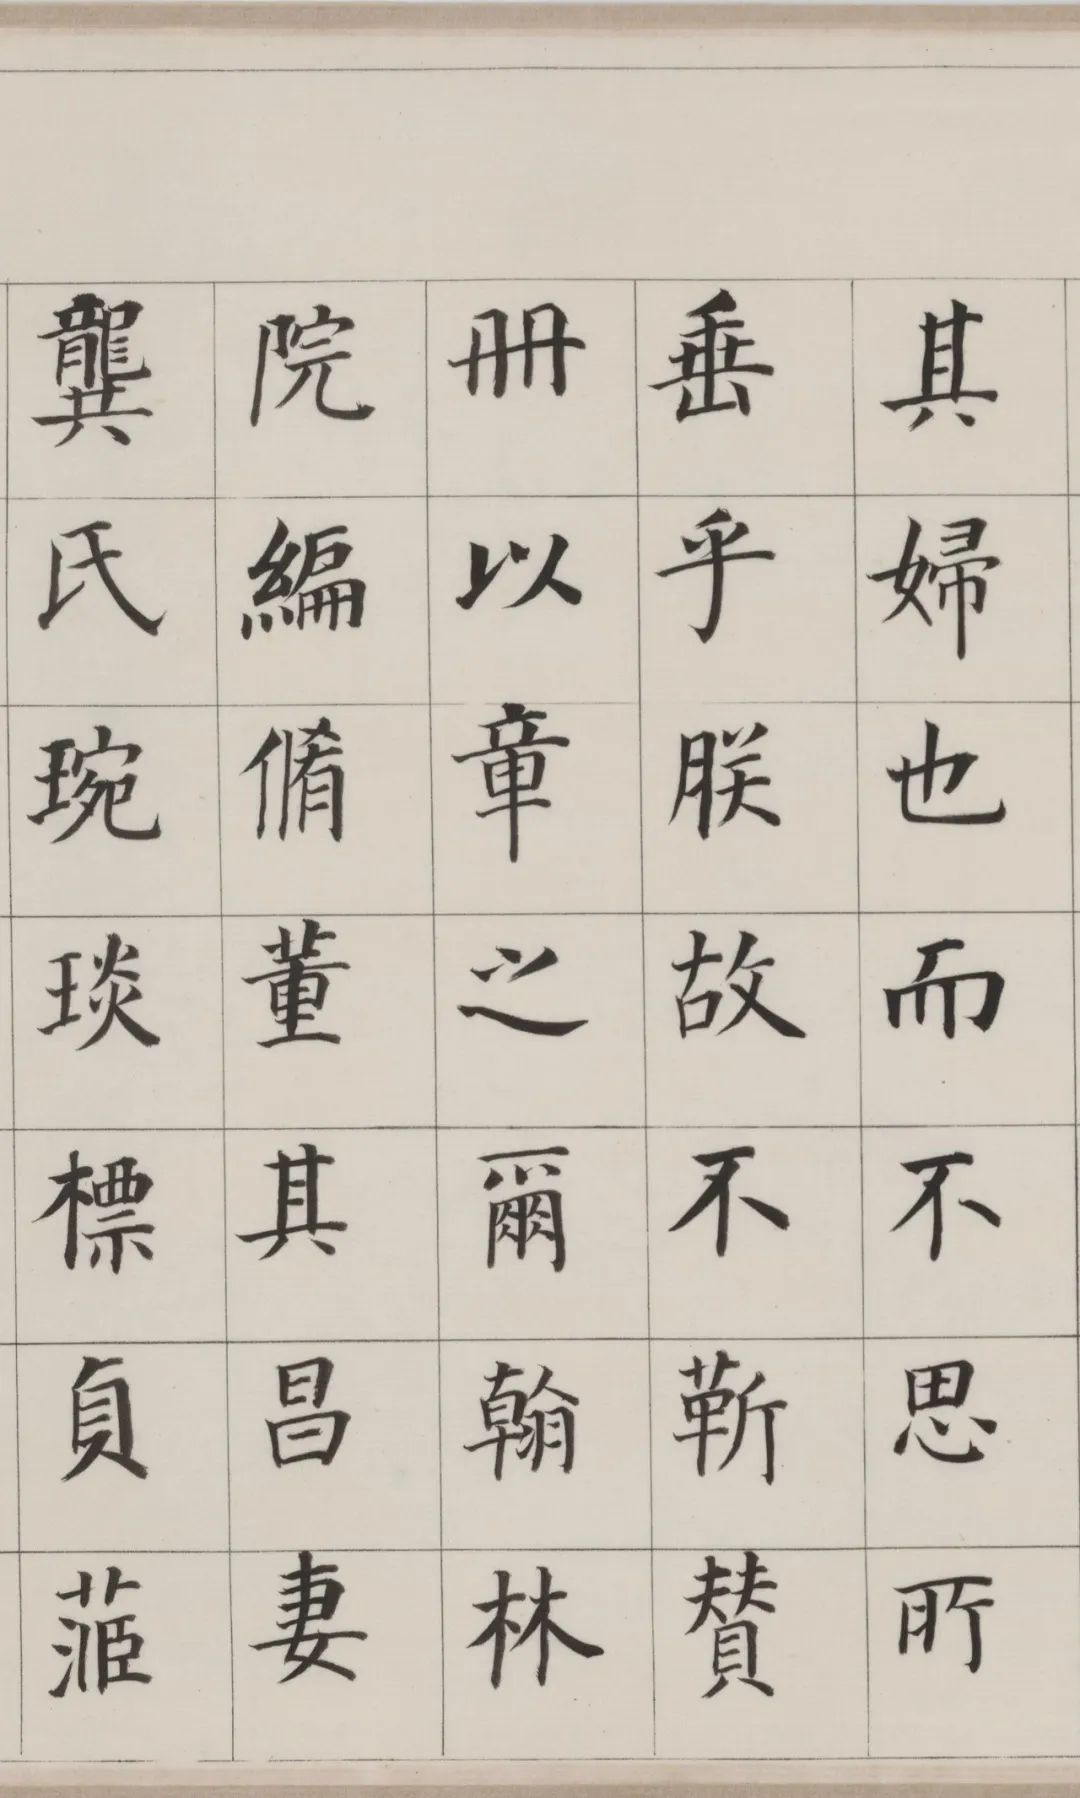 其婦也而不思所
垂乎朕故不蘄賛
冊以章之爾翰林
院編脩董其昌妻
龔氏琬琰標貞茝